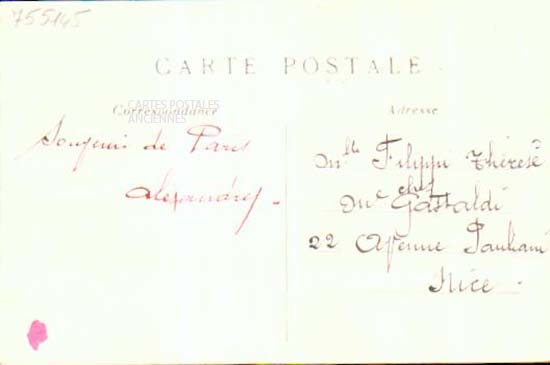 755145
CARTE POSTALE
CARTES POSTALES
ANCIENNES
Correspondance
Adresse
Souvenir de Paris
Alexandre
Mlle Filippi Thérèse
chez
Me Gastaldi
22 Avenue Pauliani
Nice.